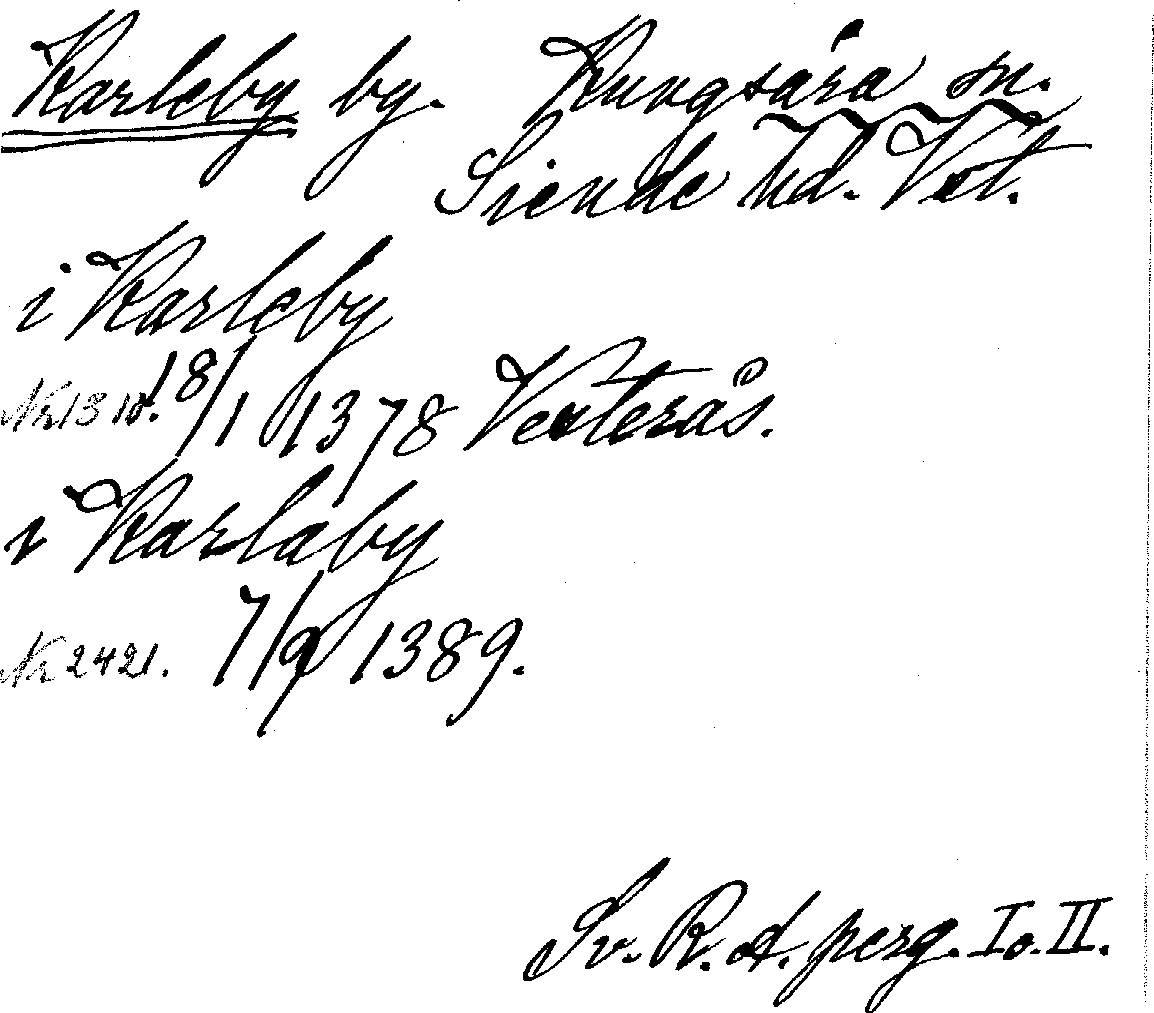 Karleby by. Kungsåra sn.
Siende hd. Vst.
i Karleby
Nr 1310. 18/1 1378 Vesterås.
i Karlaby
Nr 2421. 7/9 1389.
Sv. R. A. perg. I o. II.